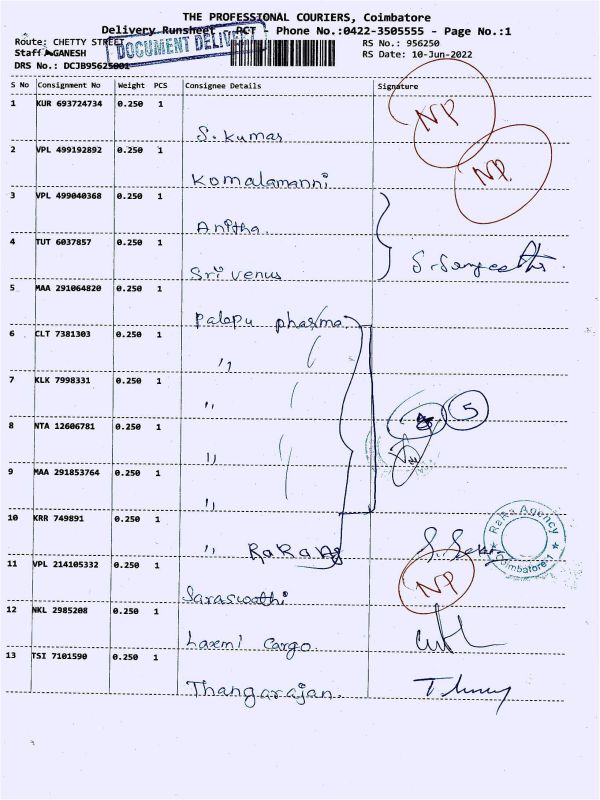 THE PROFESSIONAL COURIERS, Coimbatore
Delivery Runsheet - PCT - Phone No.:0422-3505555 - Page No.:1
Route: CHETTY STREET
DOCUMENT DELIVERY
RS No.: 956250
Staff GANESH
RS Date: 10-Jun-2022
DRS No.: DCJB95625001
S No Consignment No Weight PCS Consignee Details Signature
1 KUR 693724734 0.250 1
S. Kumar
NP
2 VPL 499192892 0.250 1
Komalamanni
NP
3 VPL 499040368 0.250 1
Anitha.
4 TUT 6037857 0.250 1
Sri venus
5 MAA 291064820 0.250 1
Palepu pharma
6 CLT 7381303 0.250 1
,,
7 KLK 7998331 0.250 1
,,
5
8 NTA 12606781 0.250 1
,,
9 MAA 291853764 0.250 1
,,
10 KRR 749891 0.250 1
,, RaRa Ag
RaRa Agency
Coimbatore-1
11 VPL 214105332 0.250 1
Saraswathi
NP
12 NKL 2985208 0.250 1
Laxmi Cargo.
13 TSI 7101590 0.250 1
Thangarajan.